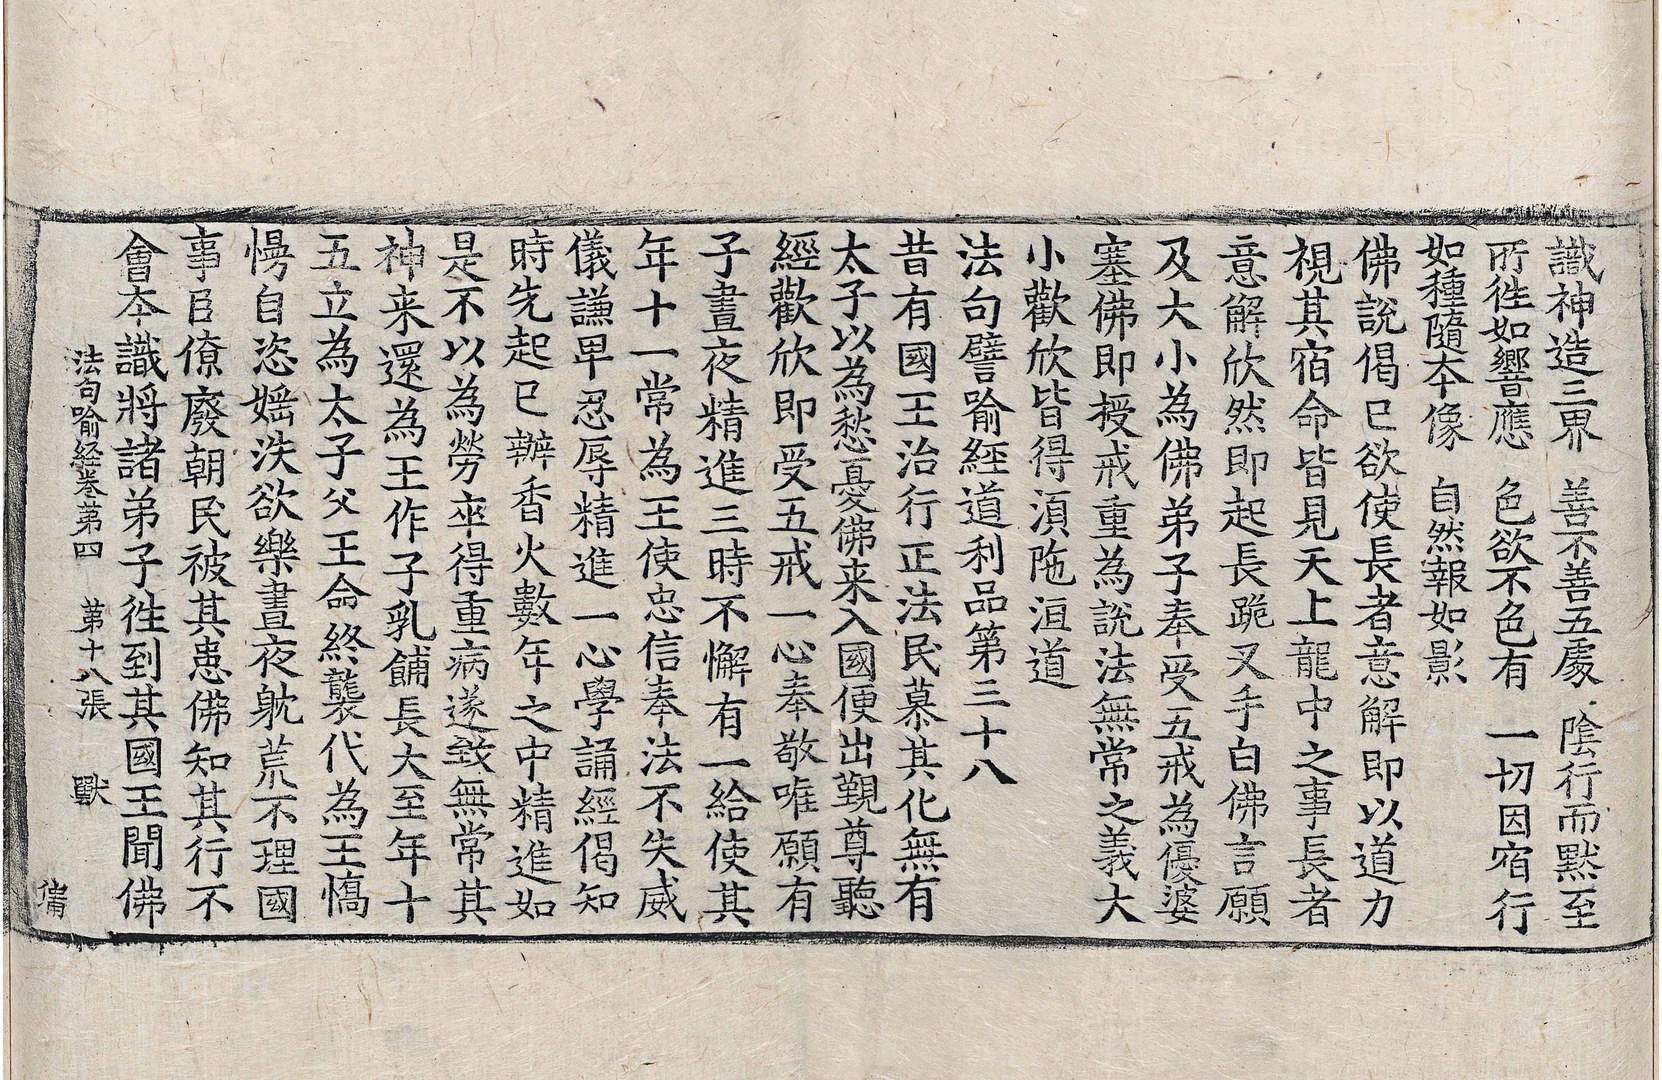 識神造三界　善不善五處　陰行而默至
所徃如響應　色欲不色有　一切因宿行
如種隨夲像　自然報如影
佛說偈已欲使長者意解即以道力
視其宿命皆見天上龍中之事長者
意解欣然即起長跪叉手白佛言願
及大小為佛弟子奉受五戒為優婆
塞佛即授戒重為說法無常之義大
小歡欣皆得湏陁洹道
法句譬喻經道利品第三十八
昔有國王治行正法民慕其化無有
太子以為愁憂佛来入國便出覲尊聽
經歡欣即受五戒一心奉敬唯願有
子晝夜精進三時不懈有一給使其
年十一常為王使忠信奉法不失威
儀謙卑忍辱精進一心學誦經偈知
時先起已辦香火數年之中精進如
是不以為勞卒得重病遂致無常其
神来還為王作子乳餔長大至年十
五立為太子父王命終襲代為王憍
慢自恣婬泆欲樂晝夜躭荒不理國
事臣僚廢朝民被其患佛知其行不
會夲識將諸弟子徃到其國王聞佛
法句喻経卷第四　第十八張　獸
備